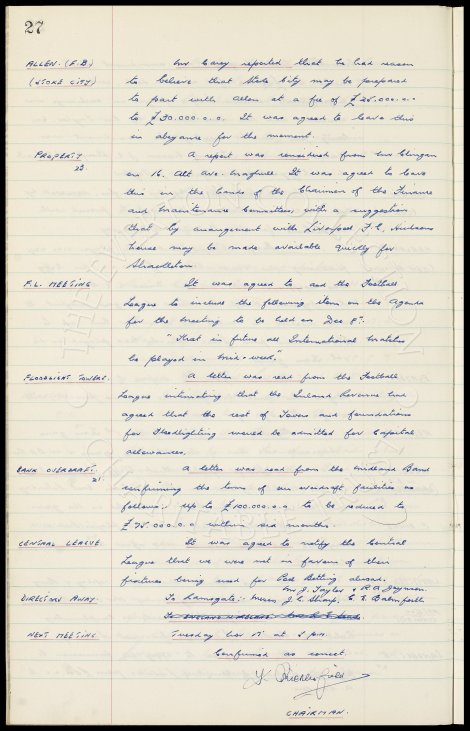 27
ALLEN. (F.B) Mr Carey reported that he had reason
(STOKE CITY) to believe that Stoke City may be prepared
to part with Allen at a fee of £25.000.0.0
to £30.000.0.0. It was agreed to leave this
in abeyance for the moment.
PROPERTY A report was considered from Mr
23 on 16. Alt Ave. Maghull. It was agreed to leave
this in the hands of the Chairman of the Finance
and Maintenance Committees, with a suggestion
that by arrangement with Liverpool F.C,
house may be made available quickly for

F.L. MEETING It was agreed to ask the Football
League to include the following item on the Agenda
for the meeting to be held on Dec 8th:-
"That in future all International Matches
be played in mid-week."
FLOODLIGHT TOWERS. A letter was read from the Football
League intimating that the Inland Revenue had
agreed that the cost of Towers and foundations
for Floodlighting would be admitted for Capital
allowances.
BANK OVERDRAFT. A letter was read from the Midland Bank
21 confirming the terms of our overdraft facilities as
follows: up to £100.000.0.0 to be reduced to
£75.000.0.0 within six months.
CENTRAL LEAGUE. It was agreed to notify the Central
League that we were not in favour of their
fixtures being used for Pool Betting abroad.
Mr J. Taylor & R.A.
DIRECTORS AWAY. To Ramsgate: Messrs J.C. Sharp, C.E. Balmforth
NEXT MEETING. Tuesday Nov at 5 pm.
Confirmed as correct.
CHAIRMAN.